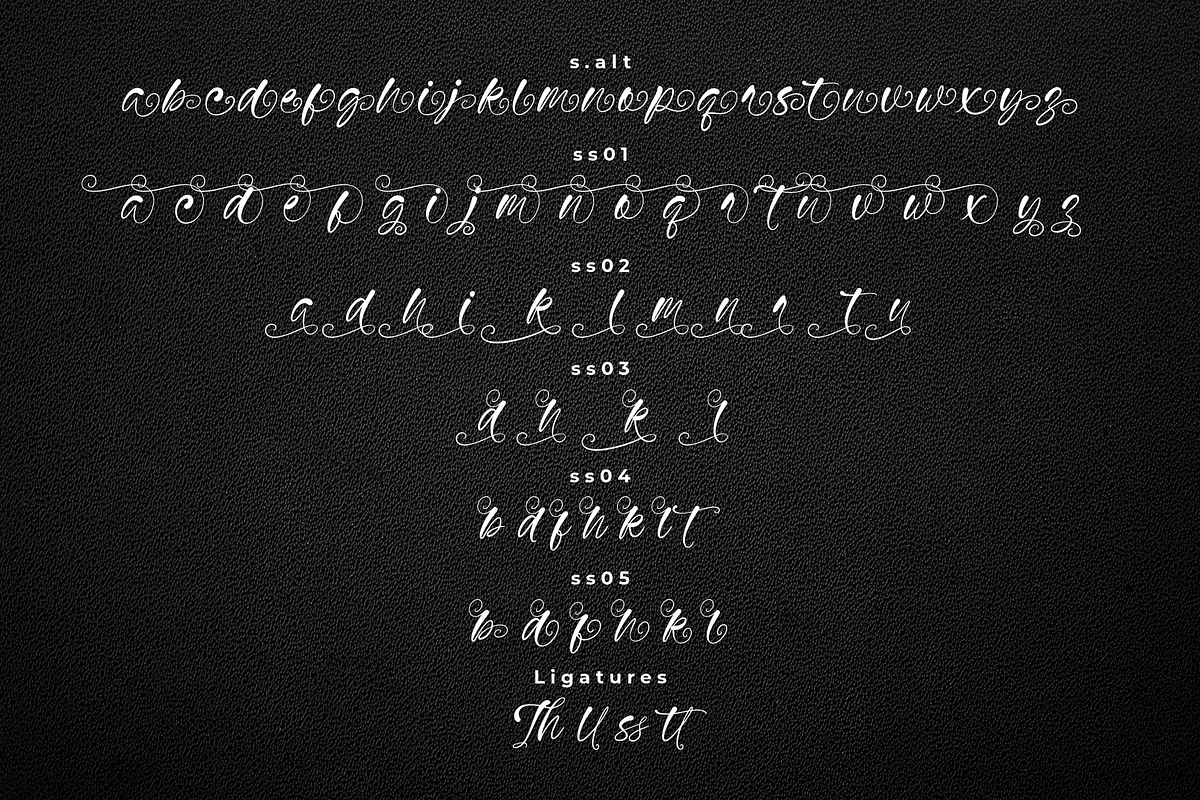 s.alt
abcdefghijklmnopqrstuvwxyz
ss01
a c d e f g i j m n o q r t u v w x y z
ss02
a d h i k l m n r t u
ss03
d h k l
ss04
b d f h k l t
ss05
b d f h k l
Ligatures
Th ll ss tt